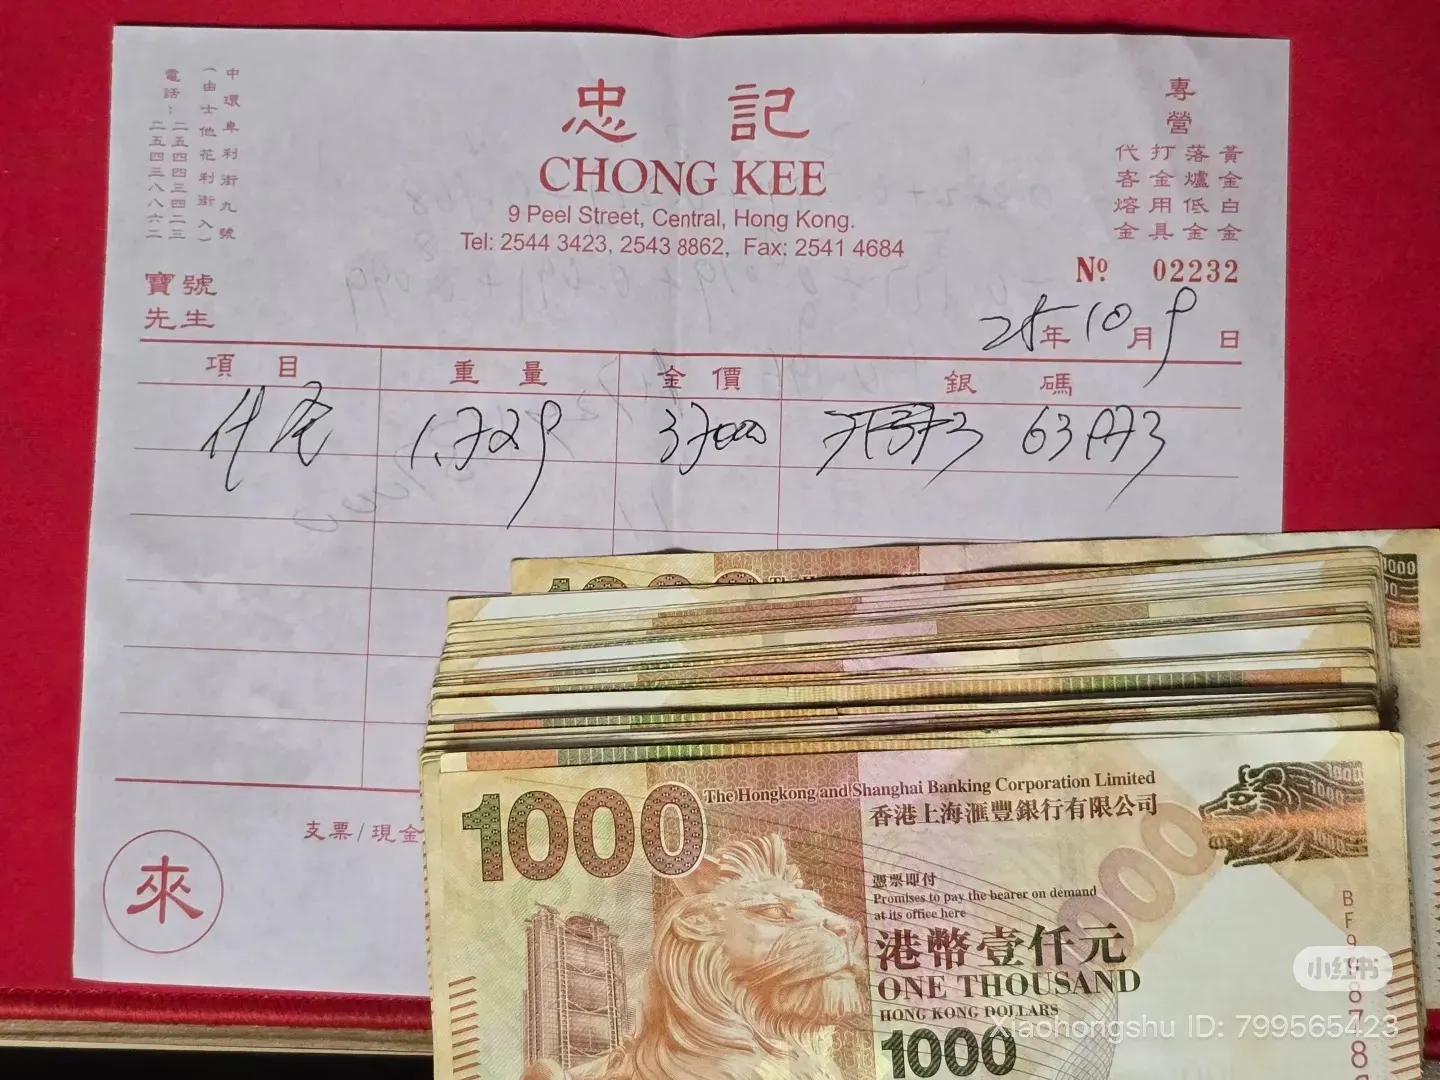 忠記
CHONG KEE
9 Peel Street, Central, Hong Kong.
Tel: 2544 3423, 2543 8862, Fax: 2541 4684
中環卑利街九號
（由士他花利街入）
電話：二五四四三四二三
二五四三八八六二
專營
黃金白金
落爐低金
打金用具
代客熔金
Nº 02232
寶號
先生
25年10月9日
項目 重量 金價 銀碼
1.729 37000 63973
支票/現金
來
1000
1000
The Hongkong and Shanghai Banking Corporation Limited
香港上海滙豐銀行有限公司
1000
憑票即付
Promises to pay the bearer on demand
at its office here
港幣壹仟元
ONE THOUSAND
HONG KONG DOLLARS
1000
小红书
Xiaohongshu ID: 799565423